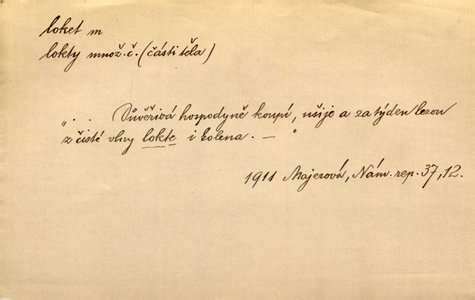 loket m
lokty množ. č. (části těla)
„ . . Důvěřivá hospodyně koupí, ušije a za týden lezou
z čisté vlny lokte i kolena. — "
1911 Majerová, Nám. rep. 37, 12.